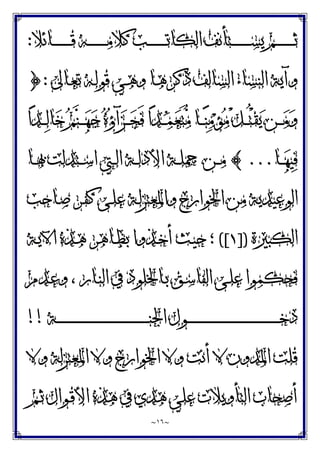 ثم يستأنف الكاتب كلامه قائلا:
وآية النساء السالف ذكرها وهي قوله تعالى : ﴿
وَمَن يَقْتُلْ مُؤْمِنًا مُّتَعَمِّدًا فَجَزَآؤُهُ جَهَنَّمُ خَالِدًا
فِيهَا ... ﴾ من جملة الأدلة التي استدلت بها
الوعيدية من الخوارج والمعتزلة على كفر صاحب
الكبيرة ([١]) ؛ حيث أخذوا بظاهر هذه الآية
فحكموا على الفاسق بالخلود في النار ، وعدم
دخول الجنة !!
قلت المدون لا أنت ولا الخوارج ولا المعتزلة ولا
أصحاب التأويلات على هدي في هذه الأقوال ثم
~١٦~